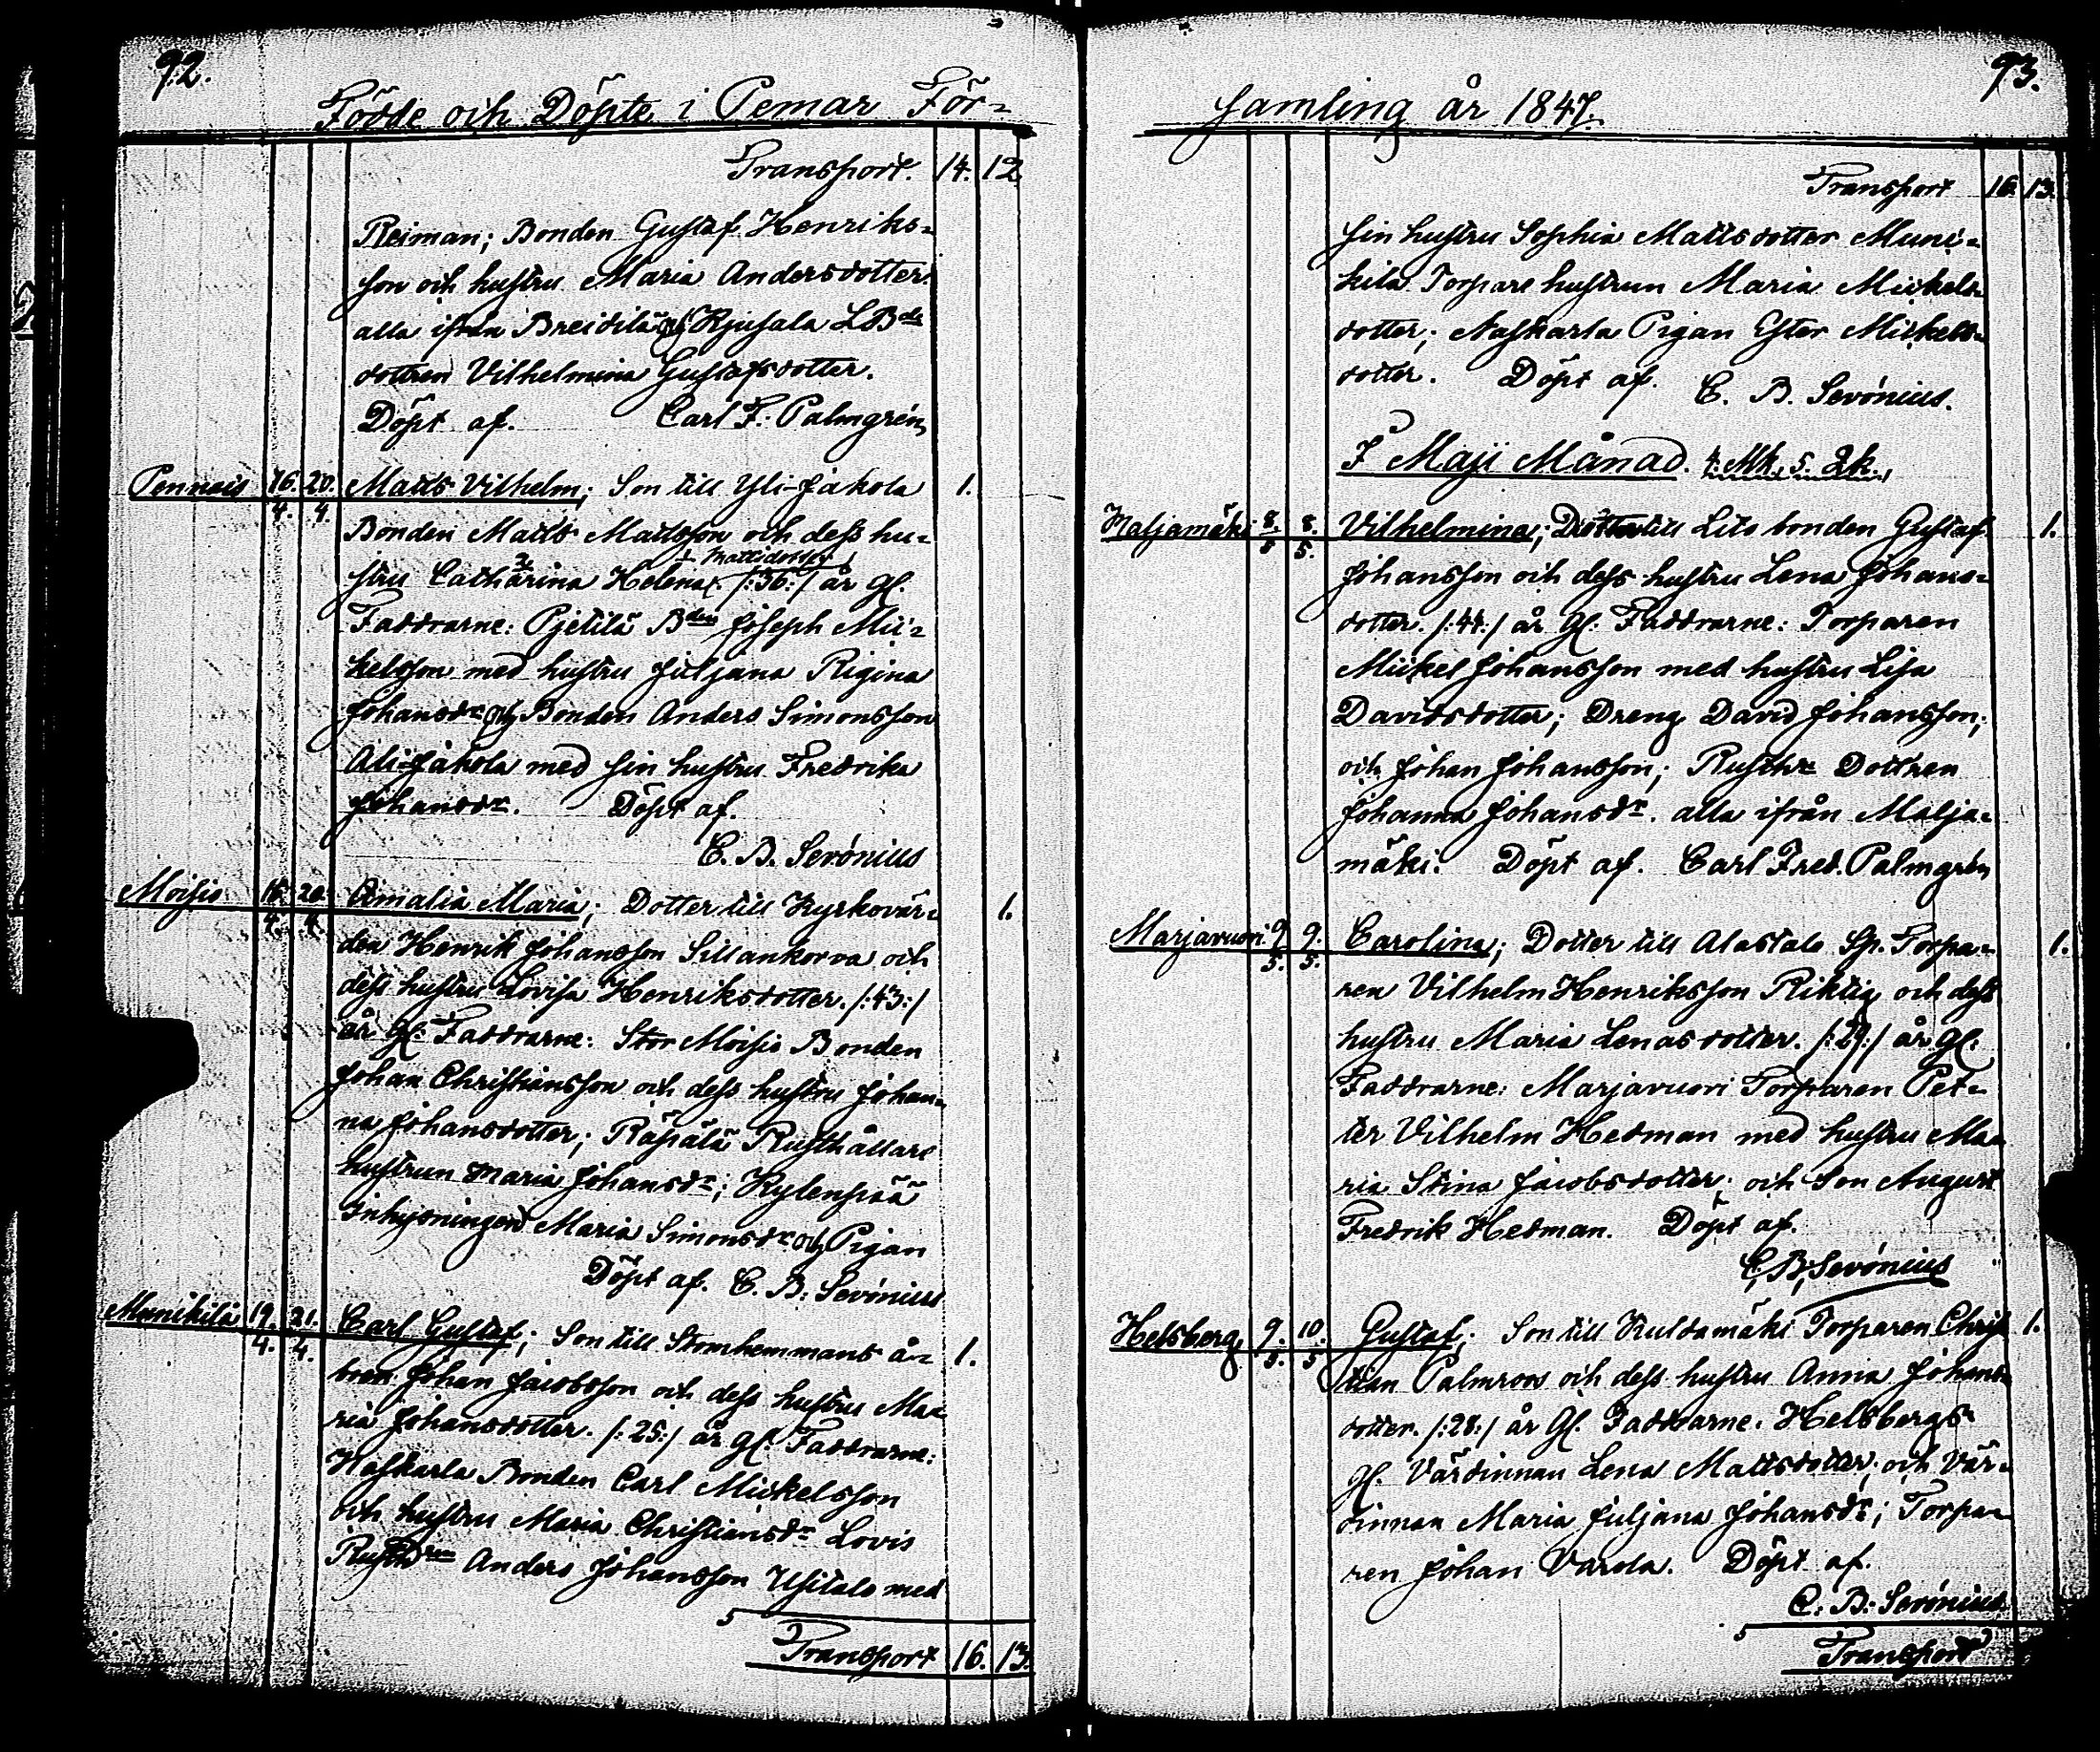 92.
Födde och Döpte i Pemar För-
Transport. 14. 12
Reiman; Bonden Gustaf Henriks-
son och hustru Maria Andersdotter.
alla ifrån Breidilä och Kjusala LBde
dottren Vilhelmina Gustafsdotter.
Döpt af. Carl F. Palmgrén
Pennais 16. 20. Matts Vilhelm; Son till Yli-Jakola 1.
4. 4. Bonden Matts Mattsson och dess hu-
Mattsdotter
stru Catharina Helena /:36:/ år gl.
Faddrarne: Pjetilä Bden Joseph Mic-
kelsson med hustru Juljana Rigina
Johansdr och Bonden Anders Simonsson
Ali-Jakola med sin hustru Fredrika
Johansdr. Döpt af.
C. B. Serónius
Moisio 16. 20. Amalia Maria; Dotter till Kyrkovär- 1.
4. 4.
den Henrik Johansson Sillankorva och
dess hustru Lovisa Henriksdotter. /:43:/
år gl: Faddrarne: Stor Moisio Bonden
Johan Christiansson och dess hustru Johan-
na Johansdotter; Räpälä Rusthållare
hustrun Maria Johansdr; Kylenpää
Inhysningen Maria Simonsdr och Pigan
Döpt af. C. B. Serónius
Munikila 19. 21. Carl Gustaf; Son till Stomhemmans å- 1.
4. 4.
boen Johan Jacobsson och dess hustru Ma-
ria Johansdotter. /:25:/ år gl. Faddrarne:
Naskarla Bonden Carl Mickelsson
och hustru Maria Christiansdr Lovis
Anders Johansson Usitalo med
5
Transport 16. 13.
93.
samling år 1847.
Transport 16. 13.
sin hustru Sophia Mattsdotter Muni-
kila Torpare hustrun Maria Mickels-
dotter; Naskarla Pigan Ester Mickels-
dotter. Döpt af. C. B. Serónius.
I Maji Månad. 4. Mk, 5. Qk.,
Maljamäki 8. 8. Vilhelmina; Dotter till Lilo bonden Gustaf 1.
5 5.
Johansson och dess hustru Lena Johans-
dotter. /:44:/ år gl: Faddrarne: Torparen
Mickel Johansson med hustru Lisa
Davidsdotter; Dreng David Johansson;
och Johan Johansson; Rusthr Dottren
Johanna Johansdr. alla ifrån Malja-
mäki. Döpt af. Carl Fred. Palmgrén
Marjavuori 9. 9. Carolina; Dotter till Alastalo Sp. Torpa- 1.
5. 5.
ren Vilhelm Henriksson Riktig och dess
hustru Maria Lenasdotter. /:29:/ år gl:
Faddrarne: Marjavuori Torparen Pet-
ter Vilhelm Hedman med hustru Ma-
ria Stina Jacobsdotter; och Son August
Fredrik Hedman. Döpt af.
C. B. Serónius
Helsberg 9. 10. Gustaf; Son till Kuldamäki Torparen Chris 1.
5. 5
tian Palmroos och dess hustru Anna Johans-
dotter. /:28:/ år gl. Faddrarne. Helsbergs
gl. Värdinnan Lena Mattsdotter; och Vär-
dinnan Maria Juljana Johansdr; Torpa-
ren Johan Varola. Döpt af.
C. B. Serónius.
5
Transport